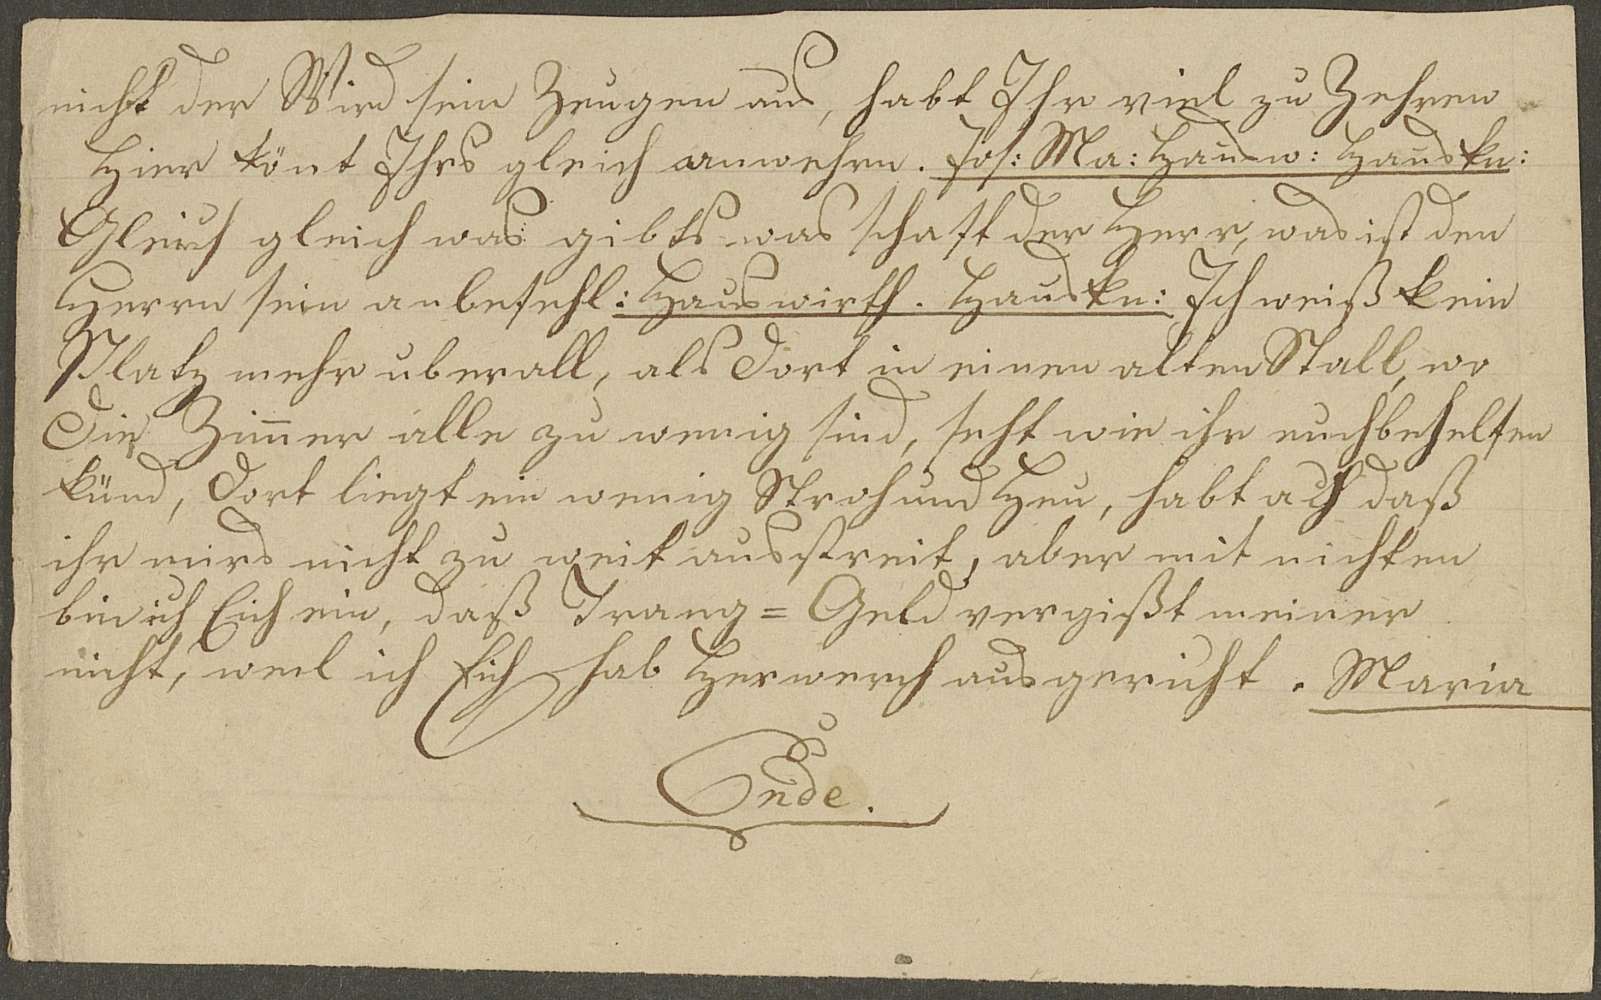 nicht der Wird sein Zeugen aus, habt Ihr viel zu Zehren
Hier könt Ihrs gleich anwehrn. Jos: Ma: Haus-w: Hauskn:
Gleich gleich was gibts was schaft der Herr, was ist den
Herrn sein anbefehl: Hauswirth. Hauskn: Ich weiß kein
Platz mehr uberall, als dort in einen alten Stall, wo
Die Zim̅er alle zu wenig sind, seht wie ihr euch behelfen
künd, dort liegt ein wenig Stroh und Heu, habt ach daß
ihr mirs nicht zu weit ausstreit, aber mit nichten
bin ich Eich ein, daß Trang = Geld vergißt meiner
nicht, weil ich Eich hab Herwerch ausgericht. Maria
Ende.